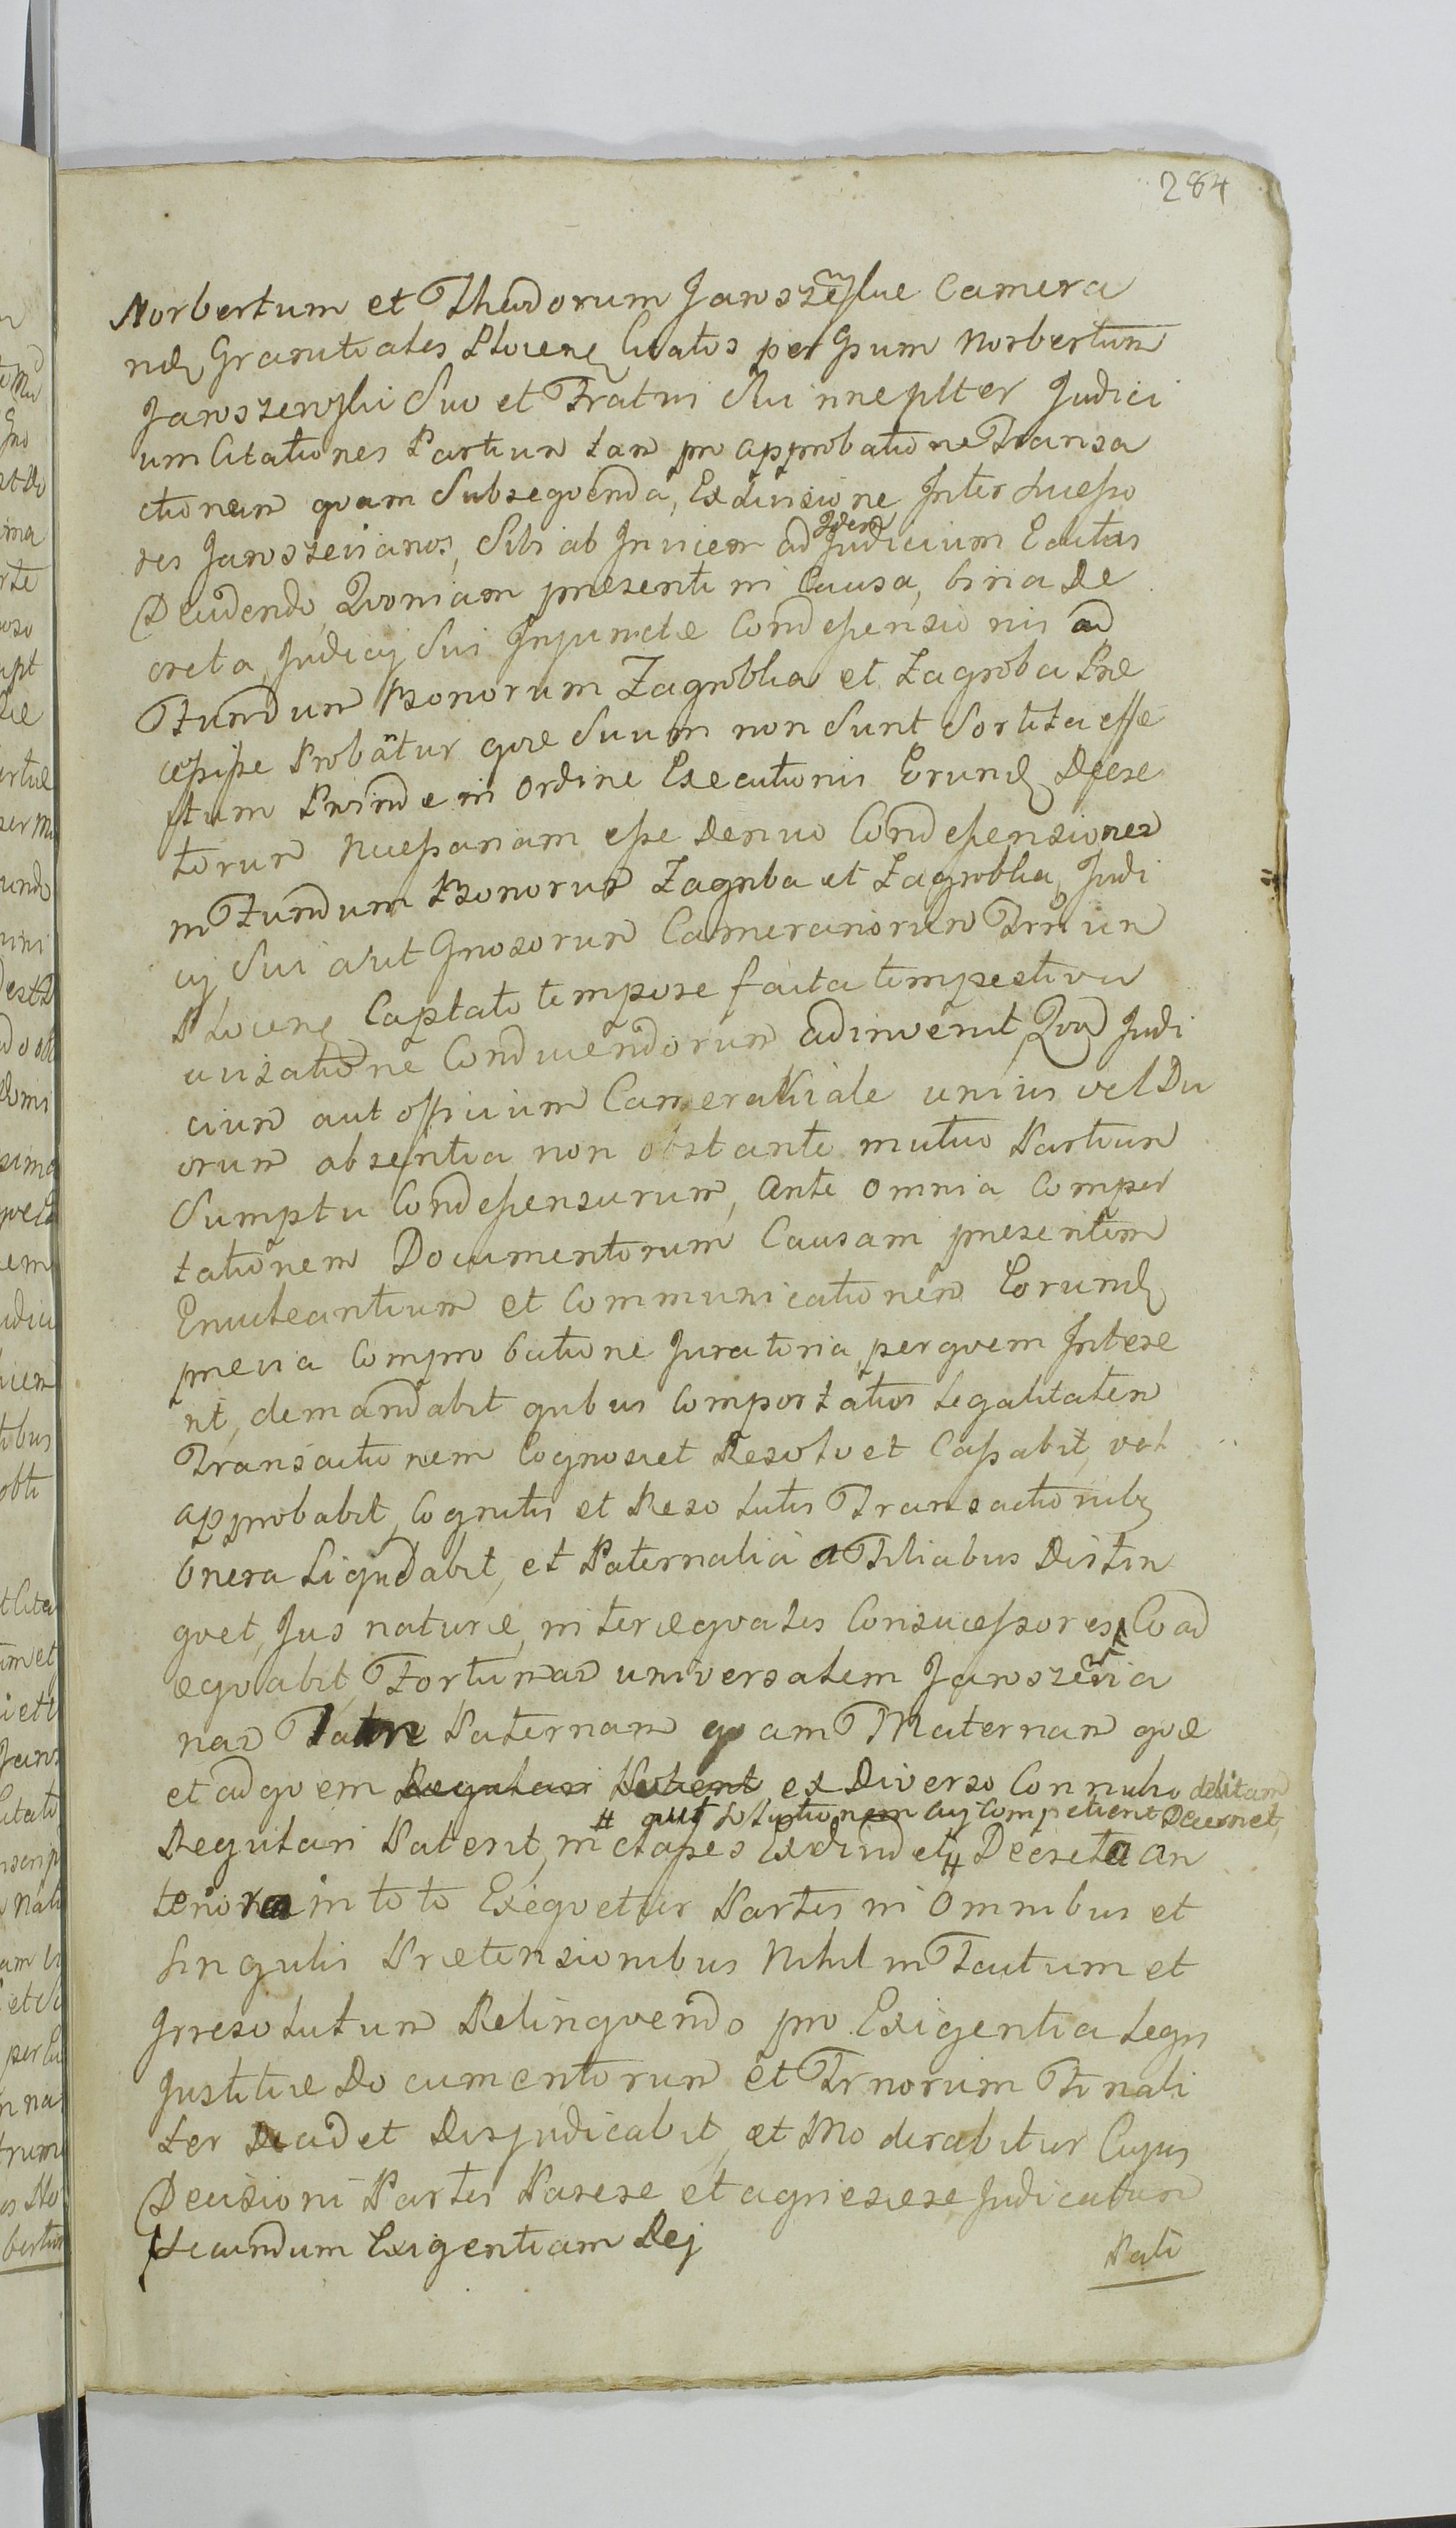 284
Norbertum et Theodorum Jaroszewskie Camera
rios Granitiales Plocens Citatos per Gsum Norbertum
Jaroszewski Suo et Fratris Sui nneplter Judici
um Citationes Partium tam pro approbatione Transa
ctionem qvam Subseqvenda, Exdivisione Inter Succeßo
res Jaroszevianos, Sibi ab Invicem ad Idem Judicium Editas
Decidendo, Qvoniam presenti in Causa, bina De
creta, Judicij Sui Injunctæ Condescensionis ad
Fundum Bonorum Zagroblia et Zagroba Præ
ceßiße Probatur qvæ Suum non Sunt Sortita effe
ctum Proinde in ordine Executionis Eorund Decre
torum Neceßariam eße denuo Condescensionem
in Fundum Bonorum Zagroba et Zagroblia, Judi
cij Sui aut Gnosorum Camerariorum Trium
Plocens Captato tempore facta tempestiva
avisatione Conducendorum adinvenit Qvod Judi
cium aut officium Camerariale unius vel Du
orum absentia non obstante mutuo Partium
Sumptu Condescensurum, Ante omnia Compor
tationem Documentorum Causam presentem
Enucleantium et Communicationem Eorund
previa Comprobatione Juratoria, per qvem Intere
rit, demandabit qvibus Comportatis Legalitatem
Transactionem Cognoscet Resolvet Caßabit, vel
approbabit, Cognitis et Resolutis Transactionibz
Onera Liqvidabit, et Paternalia a Filiabus Distin
gvet, Jus naturæ, inter æqvales Consucceßores Coad
æqvabit, Fortunam universalem Jaroszevia
nam Paternam qvam Maternam qvæ
et ad qvem Regulari Valent ex Diverso Connubio debitam
# aut Solutionem cuj Competierit Decernet,
Regulari Valent, in claßes Exdividet # Decreta an
teriora in toto Exeqvetur Partes in Omnibus et
Singulis Prætensionibus Nihil in Tactum et
Irresolutum Relinqvendo pro Exigentia Legis
Justitiæ Documentorum et Trnorum Finali
ter Decidet Disjudicabit, et Moderabitur Cujus
Decisioni Partes Parere et agnescere Judicatum
Secundum Exigentiam Rej
Rati